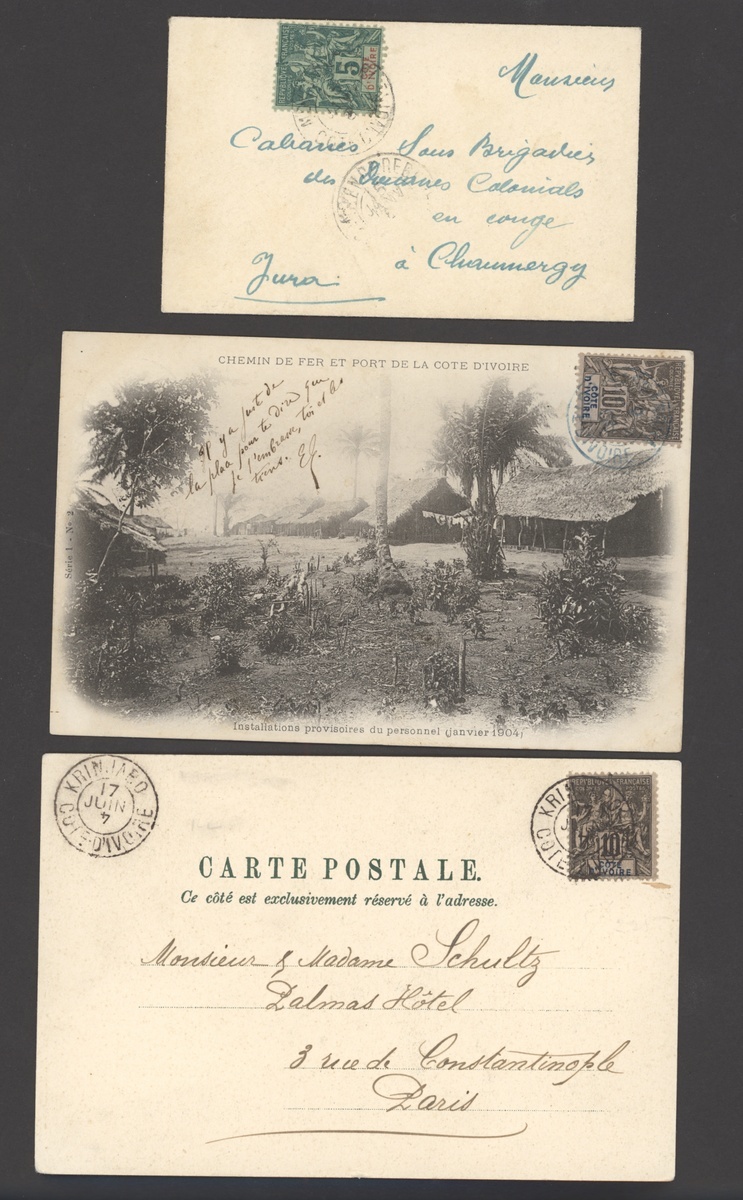 RÉPUBLIQUE FRANÇAISE
5
CÔTE D'IVOIRE
Monsieur
Cabanes Sous Brigadier
des Douanes Colonials
en conge
à Chaumergy
Jura
CHEMIN DE FER ET PORT DE LA COTE D'IVOIRE
10
CÔTE D'IVOIRE
IVOIRE
Il y a juste de
la place pour te dire que
je t'embrasse, toi et les
tiens.
Série 1 - No
Installations provisoires du personnel (janvier 1904)
KRINJABO
17
JUIN
4
COTE-D'IVOIRE
RÉPUBLIQUE FRANÇAISE
10
CÔTE D'IVOIRE
KRIN
COTE
CARTE POSTALE.
Ce côté est exclusivement réservé à l'adresse.
Monsieur & Madame Schultz
Palmas Hôtel
3 rue de Constantinople
Paris